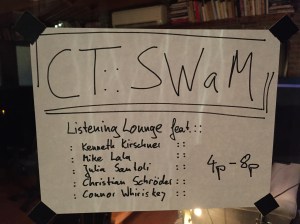 CT::SWaM
Listening Lounge feat.::
: Kenneth Kirschner ::
: Mike Lala ::
: Julia Santoli ::
: Christian Schröder ::
: Connor Whiriskey ::
4p-8p